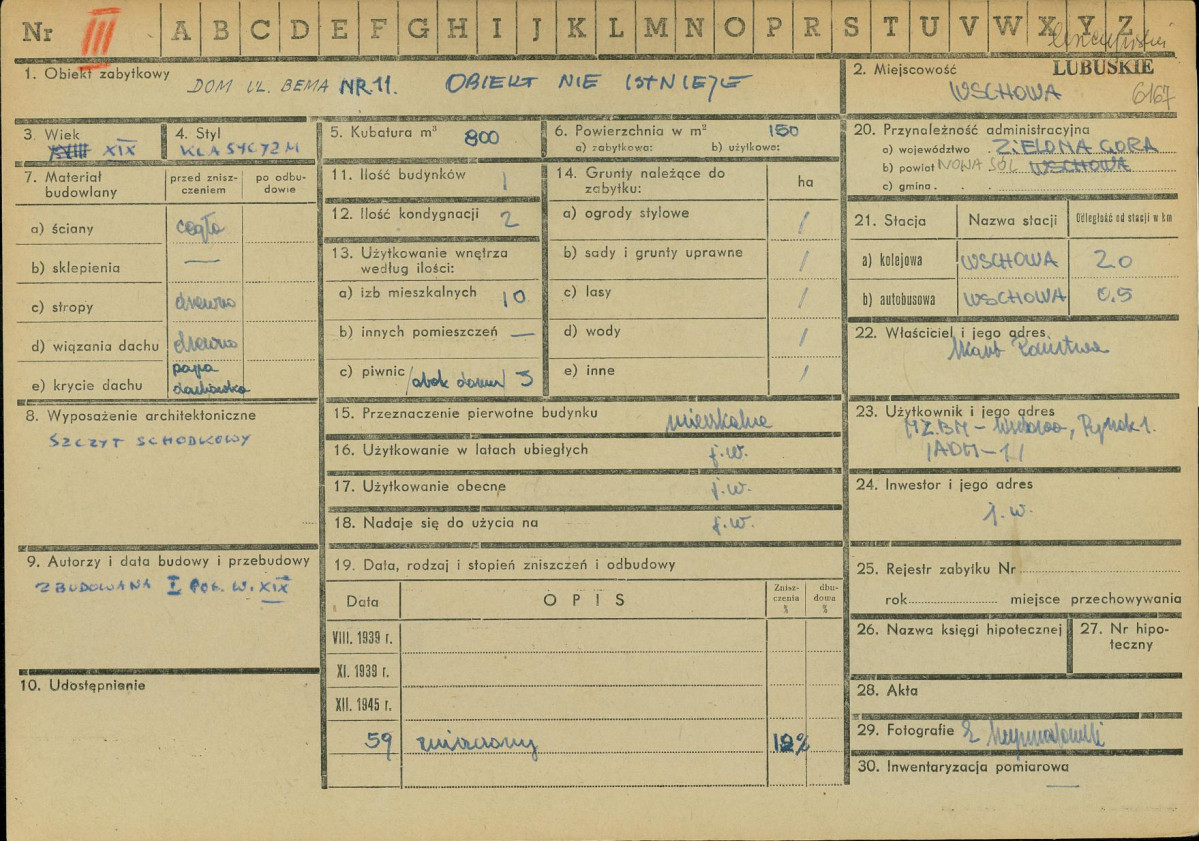 Nr III A B C D E F G H I J K L M N O P R S T U V W X Y Z
1. Obiekt zabytkowy DOM UL. BEMA NR 11. OBIEKT NIE ISTNIEJE
2. Miejscowość LUBUSKIE
WSCHOWA 6167
3. Wiek
XVIII XIX
4. Styl
KLASYCYZM
5. Kubatura m³ 800
6. Powierzchnia w m² 150
a) zabytkowa: b) użytkowa:
7. Materiał budowlany
przed znisz-
czeniem
po odbu-
dowie
a) ściany cegła
b) sklepienia —
c) stropy drewno
d) wiązania dachu drewno
e) krycie dachu papa
dachówka
8. Wyposażenie architektoniczne
SZCZYT SCHODKOWY
9. Autorzy i data budowy i przebudowy
ZBUDOWANA I POŁ. W. XIX
10. Udostępnienie
11. Ilość budynków 1
12. Ilość kondygnacji 2
13. Użytkowanie wnętrza
według ilości:
a) izb mieszkalnych 10
b) innych pomieszczeń —
c) piwnic /obok domu/ 3
14. Grunty należące do
zabytku:
ha
a) ogrody stylowe /
b) sady i grunty uprawne /
c) lasy /
d) wody /
e) inne /
15. Przeznaczenie pierwotne budynku mieszkalne
16. Użytkowanie w latach ubiegłych j.w.
17. Użytkowanie obecne j.w.
18. Nadaje się do użycia na j.w.
19. Data, rodzaj i stopień zniszczeń i odbudowy
Data OPIS
Znisz-
czenia
%
dbu-
dowa
%
VIII. 1939 r.
XI. 1939 r.
XII. 1945 r.
59 zniszczony
20. Przynależność administracyjna
a) województwo ZIELONA GÓRA
b) powiat NOWA SÓL WSCHOWA
c) gmina
21. Stacja Nazwa stacji Odległość od stacji w km
a) kolejowa WSCHOWA 2.0
b) autobusowa WSCHOWA 0.5
22. Właściciel i jego adres
Skarb Państwa
23. Użytkownik i jego adres
MZBM – Wschowa, Rynek 1.
/ADM-1/
24. Inwestor i jego adres
j.w.
25. Rejestr zabytku Nr
rok miejsce przechowywania
26. Nazwa księgi hipotecznej
27. Nr hipo-
teczny
28. Akta
29. Fotografie
30. Inwentaryzacja pomiarowa
—